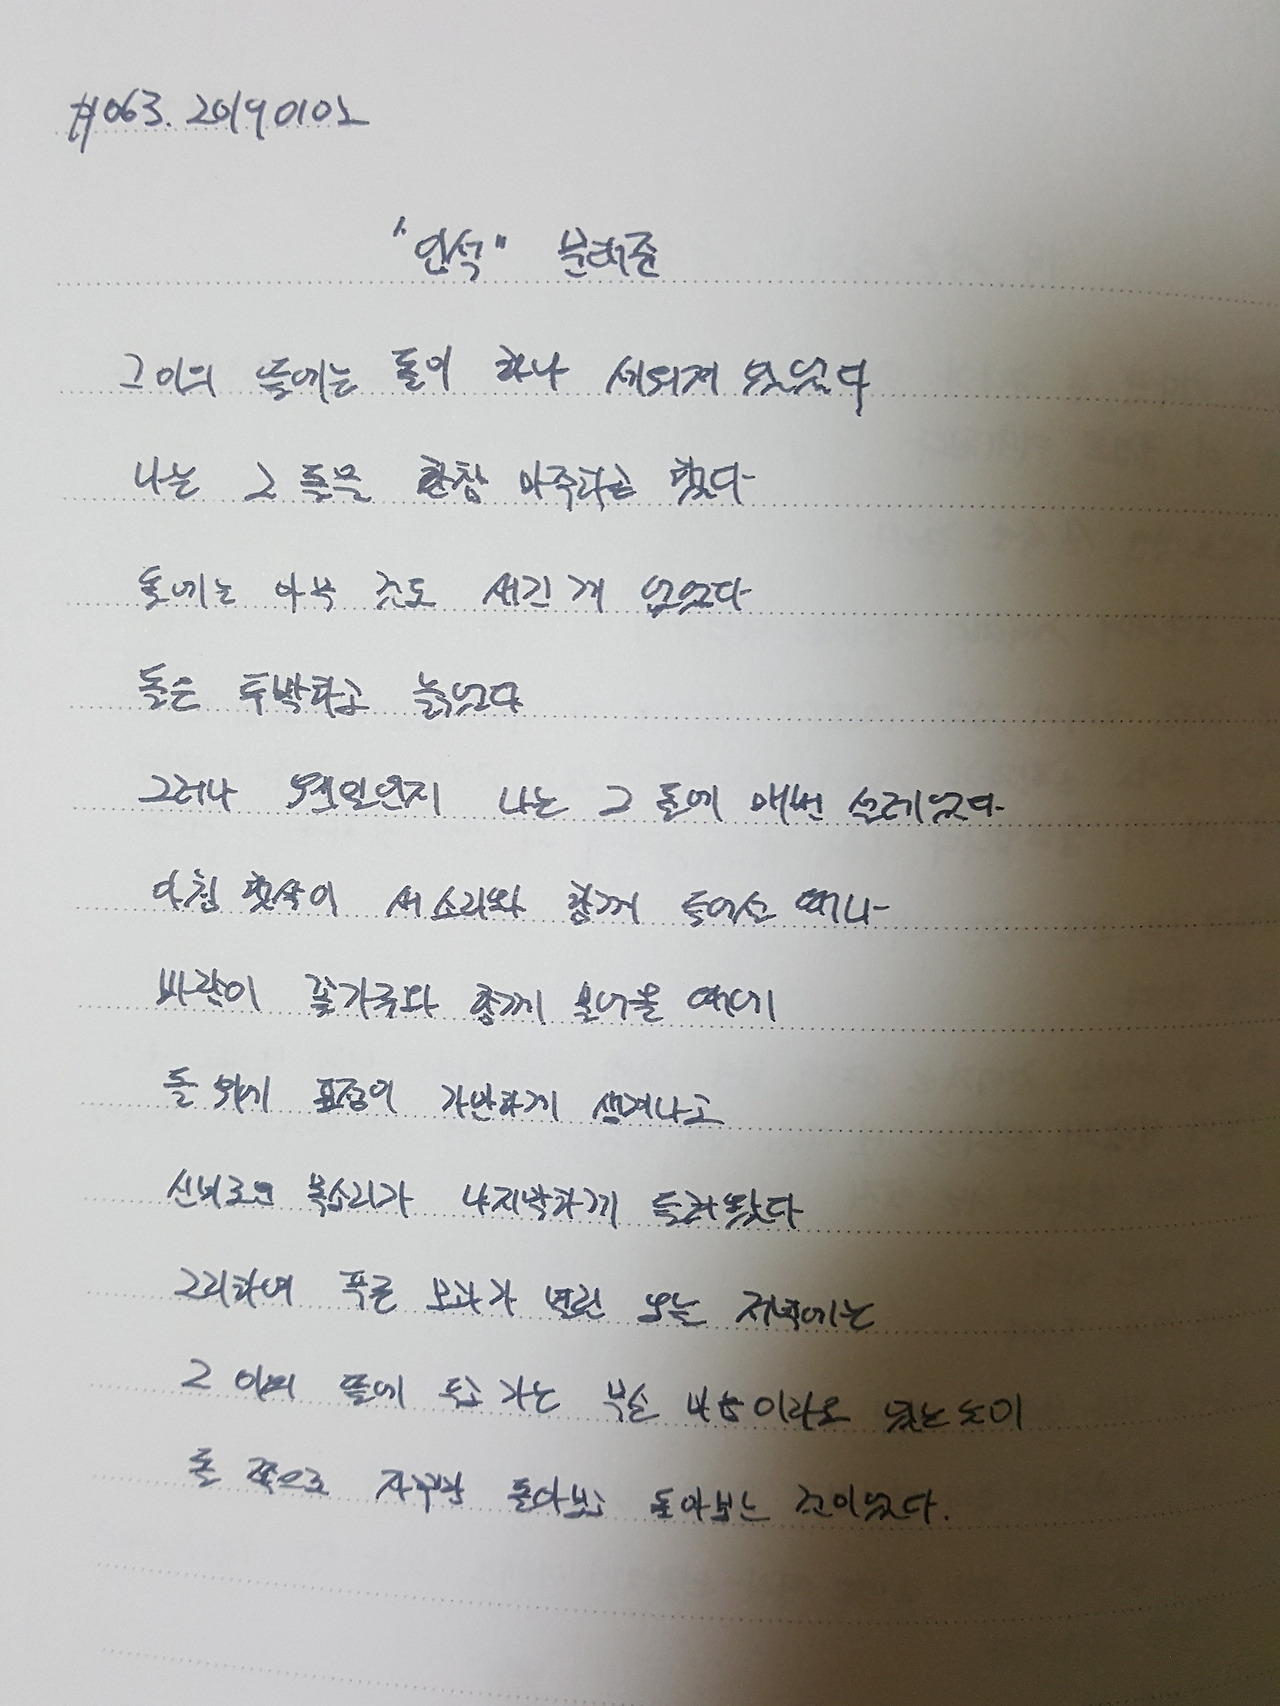 #063. 20190102
"입석" 문태준
그이의 뜰에는 돌이 하나 세워져 있었다
나는 그 돌을 한참 마주하곤 했다
돌에는 아무 것도 새긴 게 없었다
돌은 투박하고 늙었다
그러나 무엇일는지 나는 그 돌에 매번 설레었다
아침 햇살이 새소리와 함께 들어설 때나
바람이 꽃가루와 함께 불어올 때에
돌 위에 표정이 가만하게 생겨나고
신비로운 목소리가 나지막하게 들려왔다
그리하여 푸른 모과가 열린 오늘 저녁에는
그 이의 뜰에 두고 가는 무슨 마음이라도 있는 듯이
돌 쪽으로 자꾸만 돌아보고 돌아보는 것이었다.